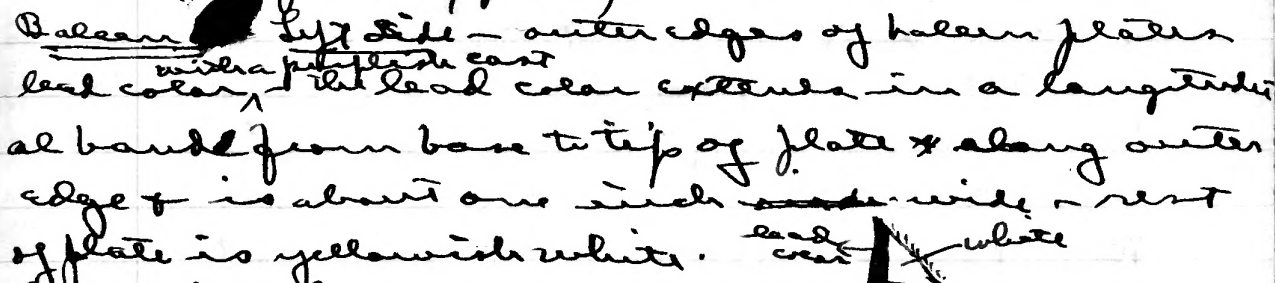 Baleen Left side – outer edges of baleen plates
with a purplish cast
lead color, – the lead color extends in a longitudin
al band from base to tip of plate & along outer
edge & is about one inch wide – rest
of plate is yellowish white. lead color white